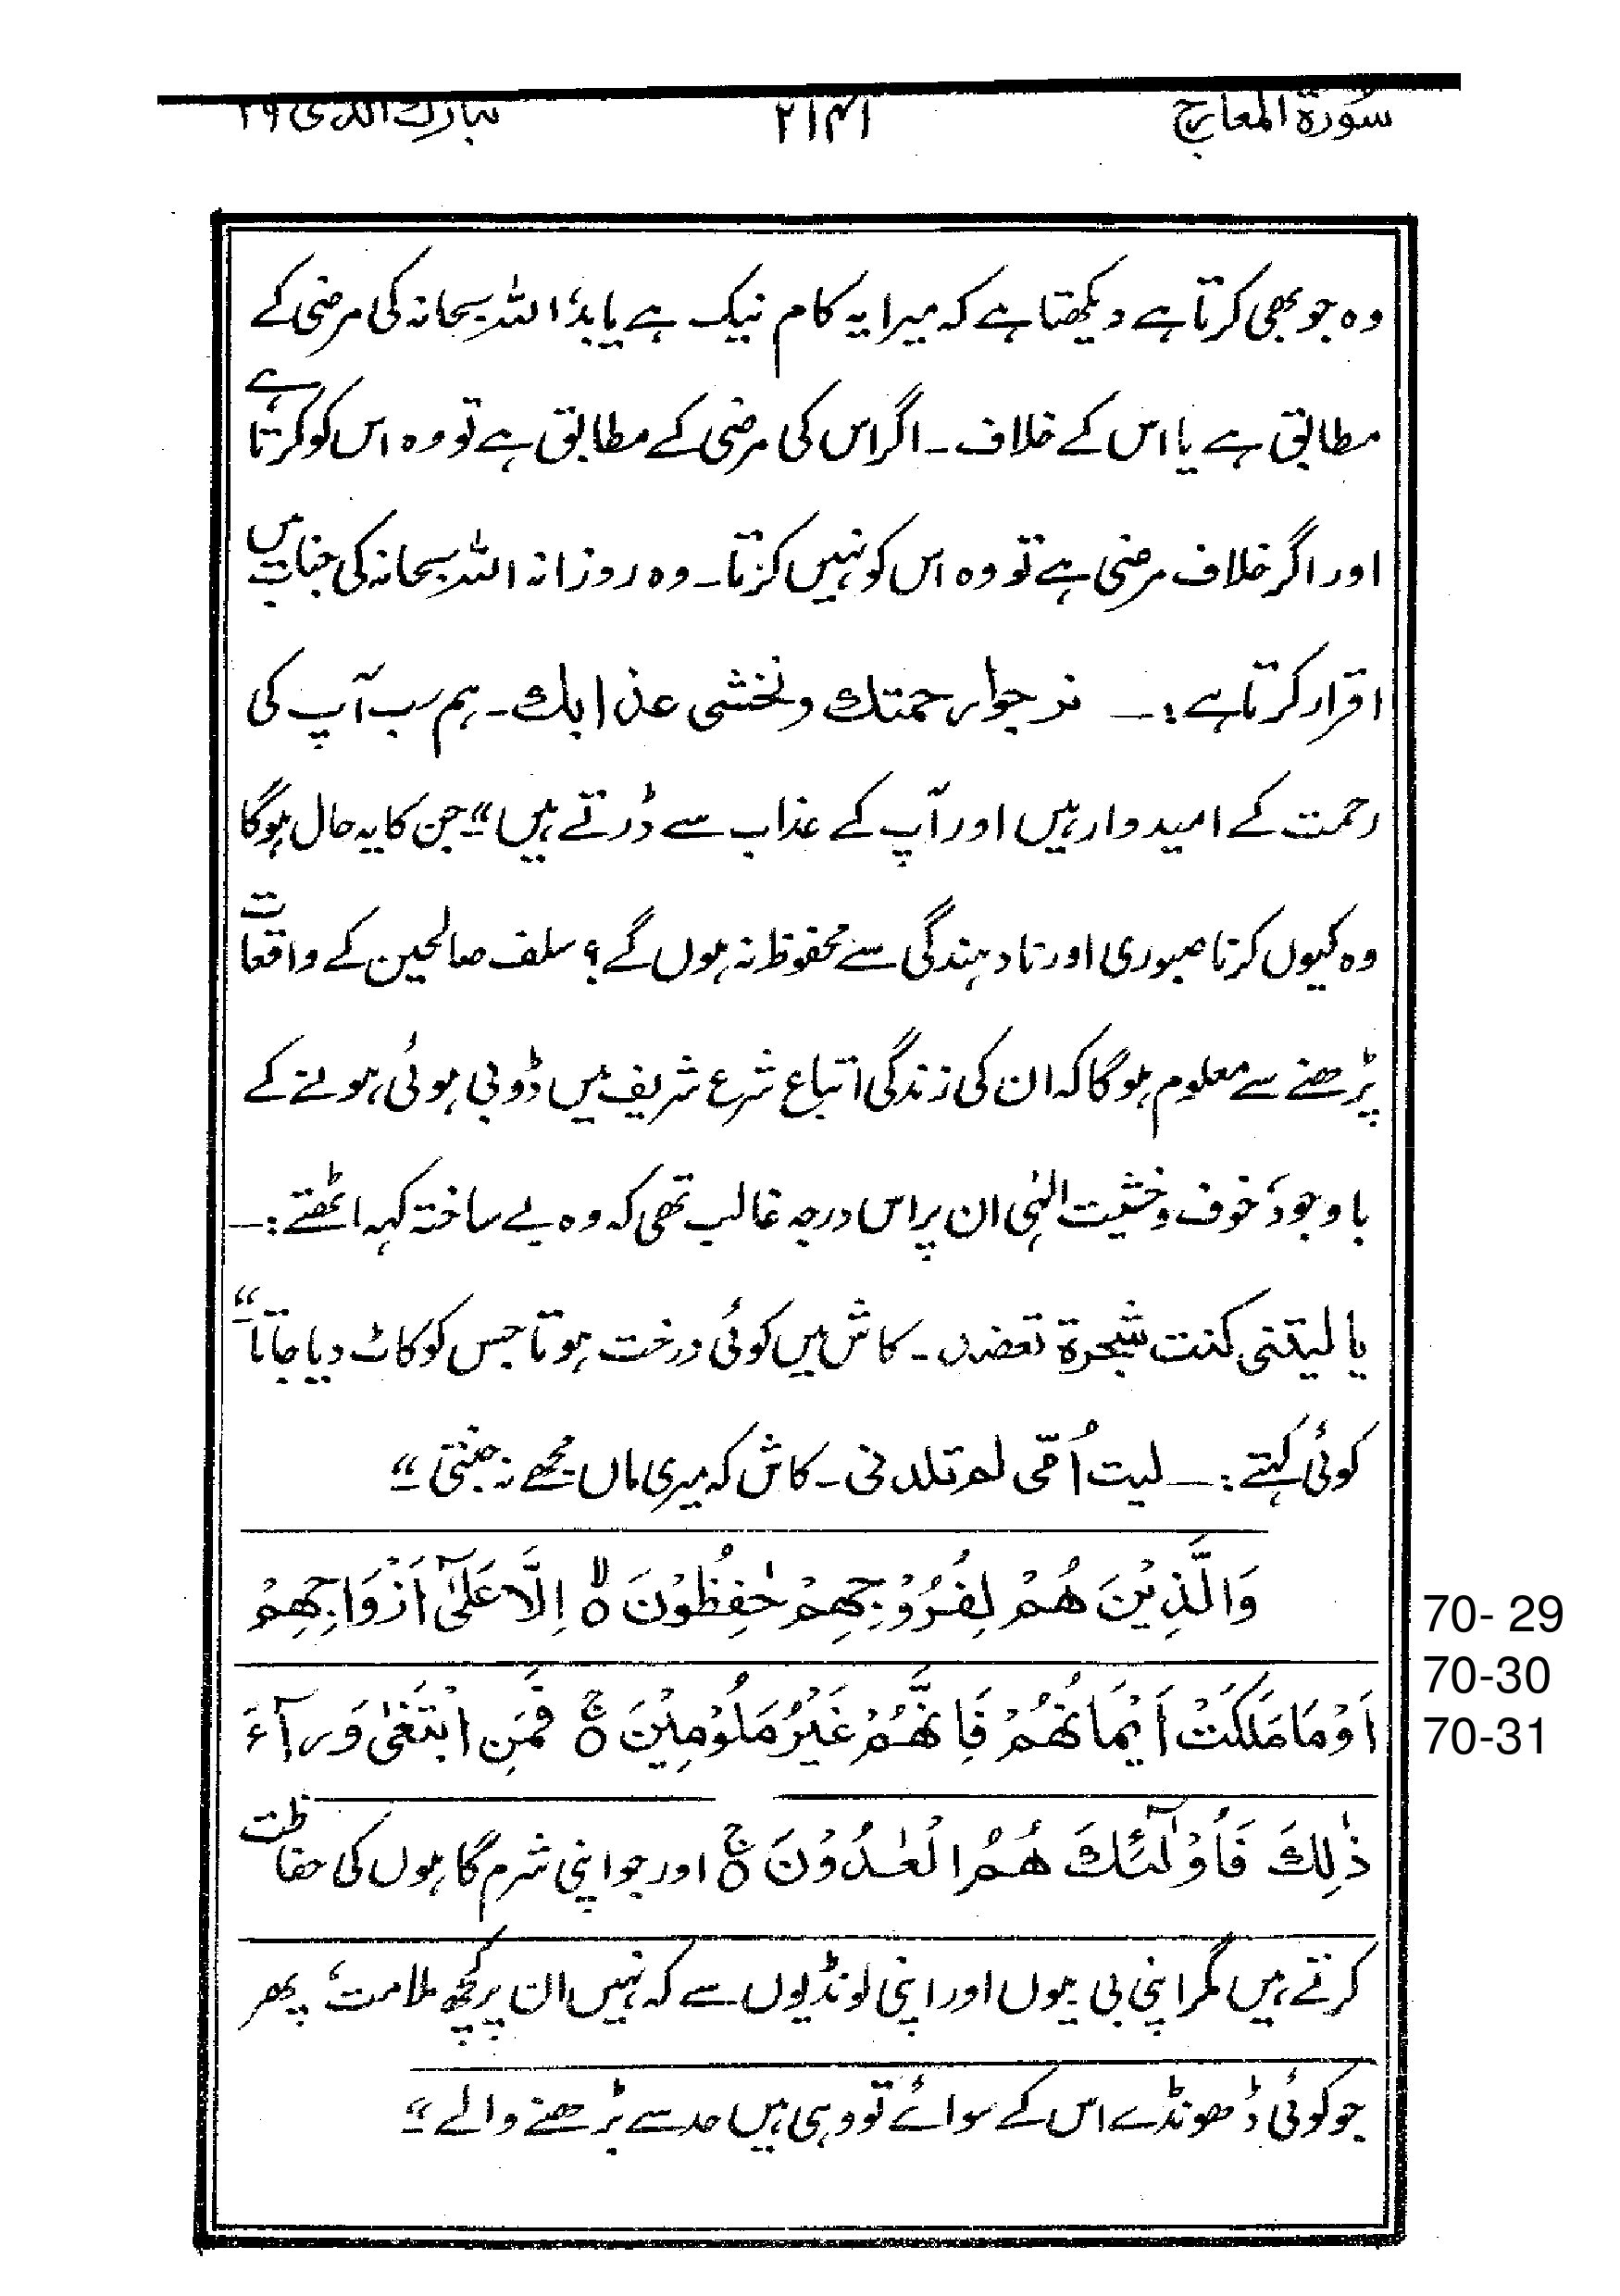 سُورۃ المعارج ۲۱۴۱ تبارك الذی ۲۹
وہ جو بھی کرتا ہے دیکھتا ہے کہ میرا یہ کام نیک ہے یا بد، اللہ سبحانہ کی مرضی کے
مطابق ہے یا اس کے خلاف ۔ اگر اس کی مرضی کے مطابق ہے تو وہ اس کو کرتا ہے
اور اگر خلاف مرضی ہے تو وہ اس کو نہیں کرتا ۔ وہ روزانہ اللہ سبحانہ کی جناب میں
اقرار کرتا ہے :— نرجوا رحمتك ونخشی عذابك ۔ ہم سب آپ کی
رحمت کے امیدوار ہیں اور آپ کے عذاب سے ڈرتے ہیں“ جن کا یہ حال ہوگا
وہ کیوں کر نا صبوری اور نا دہندگی سے محفوظ نہ ہوں گے؟ سلف صالحین کے واقعات
پڑھنے سے معلوم ہوگا کہ ان کی زندگی اتباع شرع شریف میں ڈوبی ہوئی ہونے کے
باوجود، خوف و خشیت الٰہی ان پر اس درجہ غالب تھی کہ وہ بے ساختہ کہہ اٹھتے :—
یا لیتنی کنت شجرة تعضد ۔ کاش میں کوئی درخت ہوتا جس کو کاٹ دیا جاتا“
کوئی کہتے :— لیت اُمّی لم تلدنی ۔ کاش کہ میری ماں مجھے نہ جنتی“
وَالَّذِیْنَ هُمْ لِفُرُوْجِهِمْ حٰفِظُوْنَ ۙ اِلَّا عَلٰٓی اَزْوَاجِهِمْ
70- 29
اَوْ مَا مَلَكَتْ اَیْمَانُهُمْ فَاِنَّهُمْ غَیْرُ مَلُوْمِیْنَ ۚ فَمَنِ ابْتَغٰی وَرَآءَ
70-30
70-31
ذٰلِكَ فَاُوْلٰٓئِكَ هُمُ الْعٰدُوْنَ ۚ اور جو اپنی شرم گاہوں کی حفاظت
کرتے ہیں مگر اپنی بی بیوں اور اپنی لونڈیوں سے کہ نہیں ان پر کچھ ملامت، پھر
جو کوئی ڈھونڈے اس کے سوائے تو وہی ہیں حد سے بڑھنے والے“